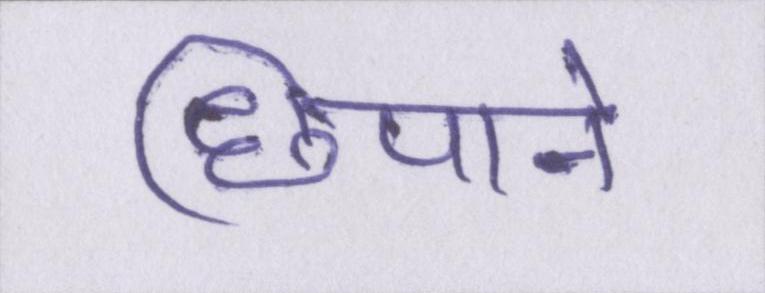 छिपाने